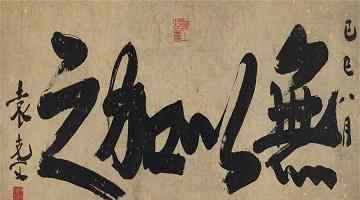 己巳八月
無以加之
袁克文